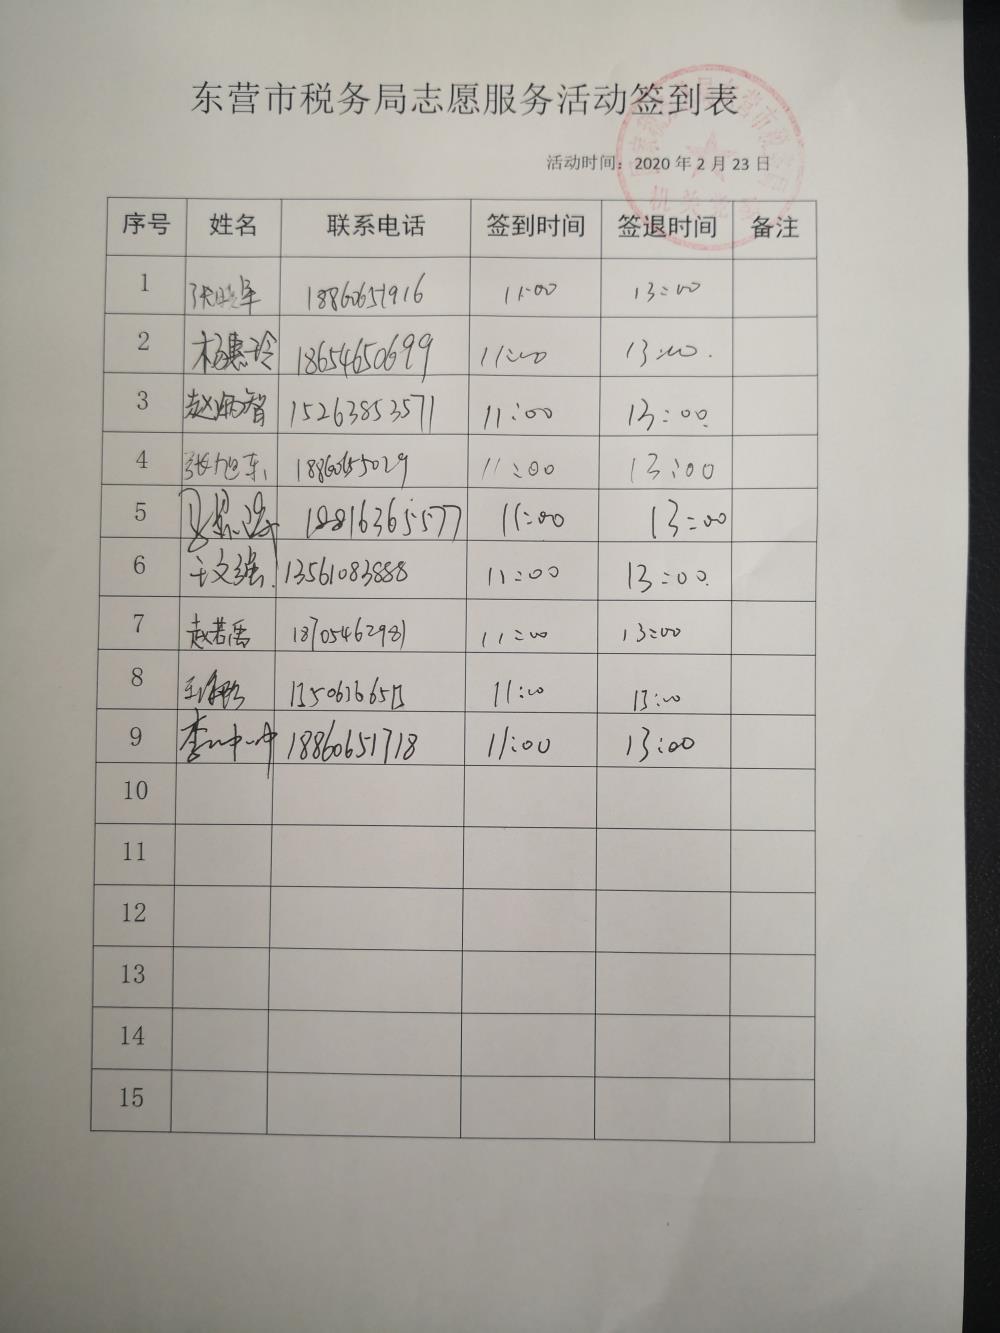 东营市税务局志愿服务活动签到表
活动时间：2020 年 2 月 23 日
序号 姓名 联系电话 签到时间 签退时间 备注
1 18860651916 11:00 13:00
2 杨惠玲 18654650699 11:00 13:00.
3 赵炳智 15263853571 11:00 13:00.
4 张旭东 18860655029 11:00 13:00
5 18816365577 11:00 13:00
6 王文强 13561083888 11:00 13:00.
7 赵若禹 18705462981 11:00 13:00
8 11:00 13:00
9 李 18860651718 11:00 13:00
10
11
12
13
14
15
机关党委